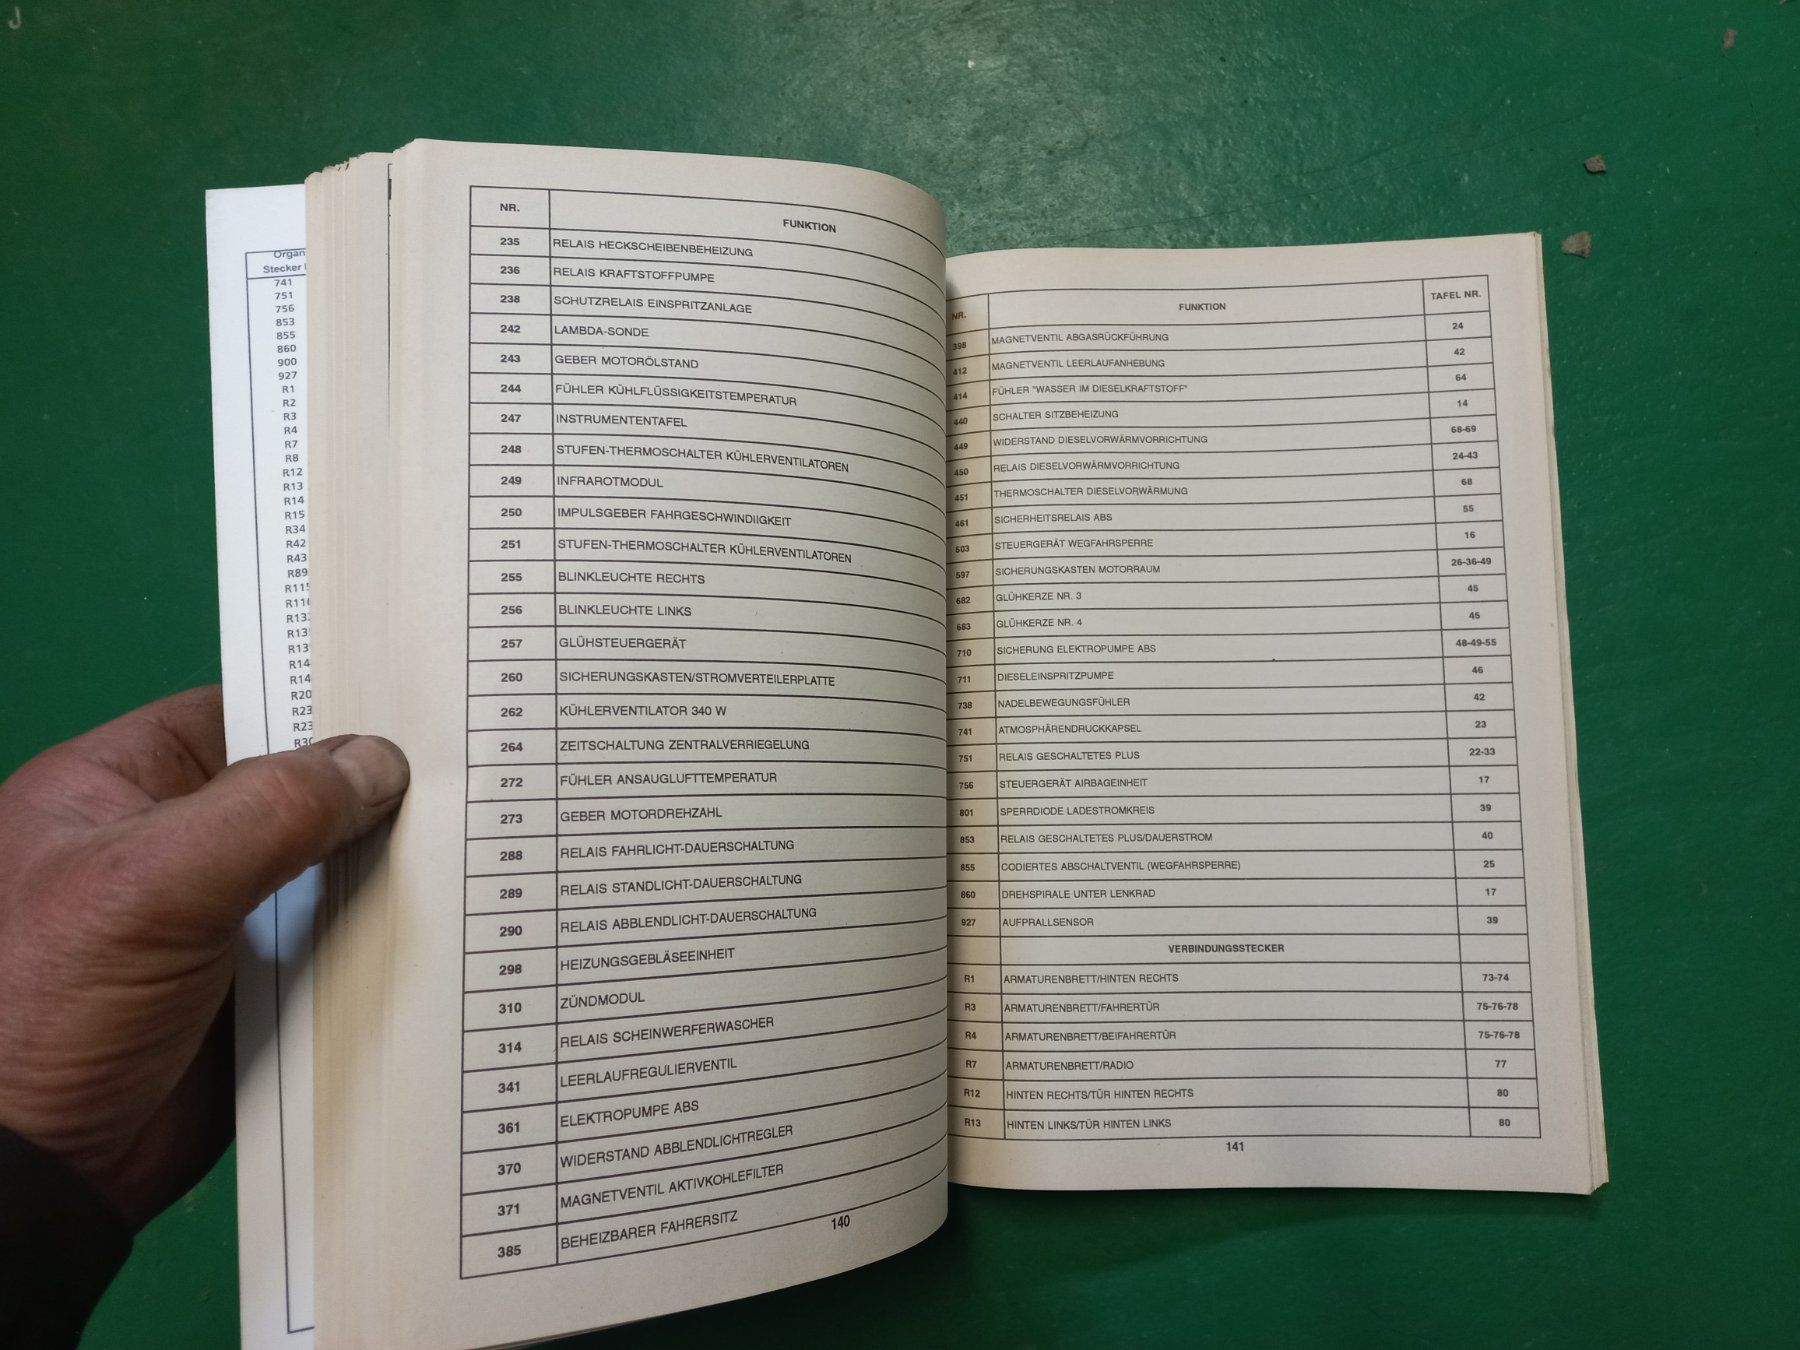 Organ
Stecker
741
751
756
853
855
860
900
927
R1
R2
R3
R4
R7
R8
R12
R13
R14
R15
R34
R42
R43
R89
NR. FUNKTION
235 RELAIS HECKSCHEIBENBEHEIZUNG
236 RELAIS KRAFTSTOFFPUMPE
238 SCHUTZRELAIS EINSPRITZANLAGE
242 LAMBDA-SONDE
243 GEBER MOTORÖLSTAND
244 FÜHLER KÜHLFLÜSSIGKEITSTEMPERATUR
247 INSTRUMENTENTAFEL
248 STUFEN-THERMOSCHALTER KÜHLERVENTILATOREN
249 INFRAROTMODUL
250 IMPULSGEBER FAHRGESCHWINDIIGKEIT
251 STUFEN-THERMOSCHALTER KÜHLERVENTILATOREN
255 BLINKLEUCHTE RECHTS
256 BLINKLEUCHTE LINKS
257 GLÜHSTEUERGERÄT
260 SICHERUNGSKASTEN/STROMVERTEILERPLATTE
262 KÜHLERVENTILATOR 340 W
264 ZEITSCHALTUNG ZENTRALVERRIEGELUNG
272 FÜHLER ANSAUGLUFTTEMPERATUR
273 GEBER MOTORDREHZAHL
288 RELAIS FAHRLICHT-DAUERSCHALTUNG
289 RELAIS STANDLICHT-DAUERSCHALTUNG
290 RELAIS ABBLENDLICHT-DAUERSCHALTUNG
298 HEIZUNGSGEBLÄSEEINHEIT
310 ZÜNDMODUL
314 RELAIS SCHEINWERFERWASCHER
341 LEERLAUFREGULIERVENTIL
361 ELEKTROPUMPE ABS
370 WIDERSTAND ABBLENDLICHTREGLER
371 MAGNETVENTIL AKTIVKOHLEFILTER
385 BEHEIZBARER FAHRERSITZ
140
NR. FUNKTION TAFEL NR.
398 MAGNETVENTIL ABGASRÜCKFÜHRUNG 24
412 MAGNETVENTIL LEERLAUFANHEBUNG 42
414 FÜHLER "WASSER IM DIESELKRAFTSTOFF" 64
440 SCHALTER SITZBEHEIZUNG 14
449 WIDERSTAND DIESELVORWÄRMVORRICHTUNG 68-69
450 RELAIS DIESELVORWÄRMVORRICHTUNG 24-43
451 THERMOSCHALTER DIESELVORWÄRMUNG 68
461 SICHERHEITSRELAIS ABS 55
503 STEUERGERÄT WEGFAHRSPERRE 16
597 SICHERUNGSKASTEN MOTORRAUM 26-36-49
682 GLÜHKERZE NR. 3 45
683 GLÜHKERZE NR. 4 45
710 SICHERUNG ELEKTROPUMPE ABS 48-49-55
711 DIESELEINSPRITZPUMPE 46
738 NADELBEWEGUNGSFÜHLER 42
741 ATMOSPHÄRENDRUCKKAPSEL 23
751 RELAIS GESCHALTETES PLUS 22-33
756 STEUERGERÄT AIRBAGEINHEIT 17
801 SPERRDIODE LADESTROMKREIS 39
853 RELAIS GESCHALTETES PLUS/DAUERSTROM 40
855 CODIERTES ABSCHALTVENTIL (WEGFAHRSPERRE) 25
860 DREHSPIRALE UNTER LENKRAD 17
927 AUFPRALLSENSOR 39
VERBINDUNGSSTECKER
R1 ARMATURENBRETT/HINTEN RECHTS 73-74
R3 ARMATURENBRETT/FAHRERTÜR 75-76-78
R4 ARMATURENBRETT/BEIFAHRERTÜR 75-76-78
R7 ARMATURENBRETT/RADIO 77
R12 HINTEN RECHTS/TÜR HINTEN RECHTS 80
R13 HINTEN LINKS/TÜR HINTEN LINKS 80
141